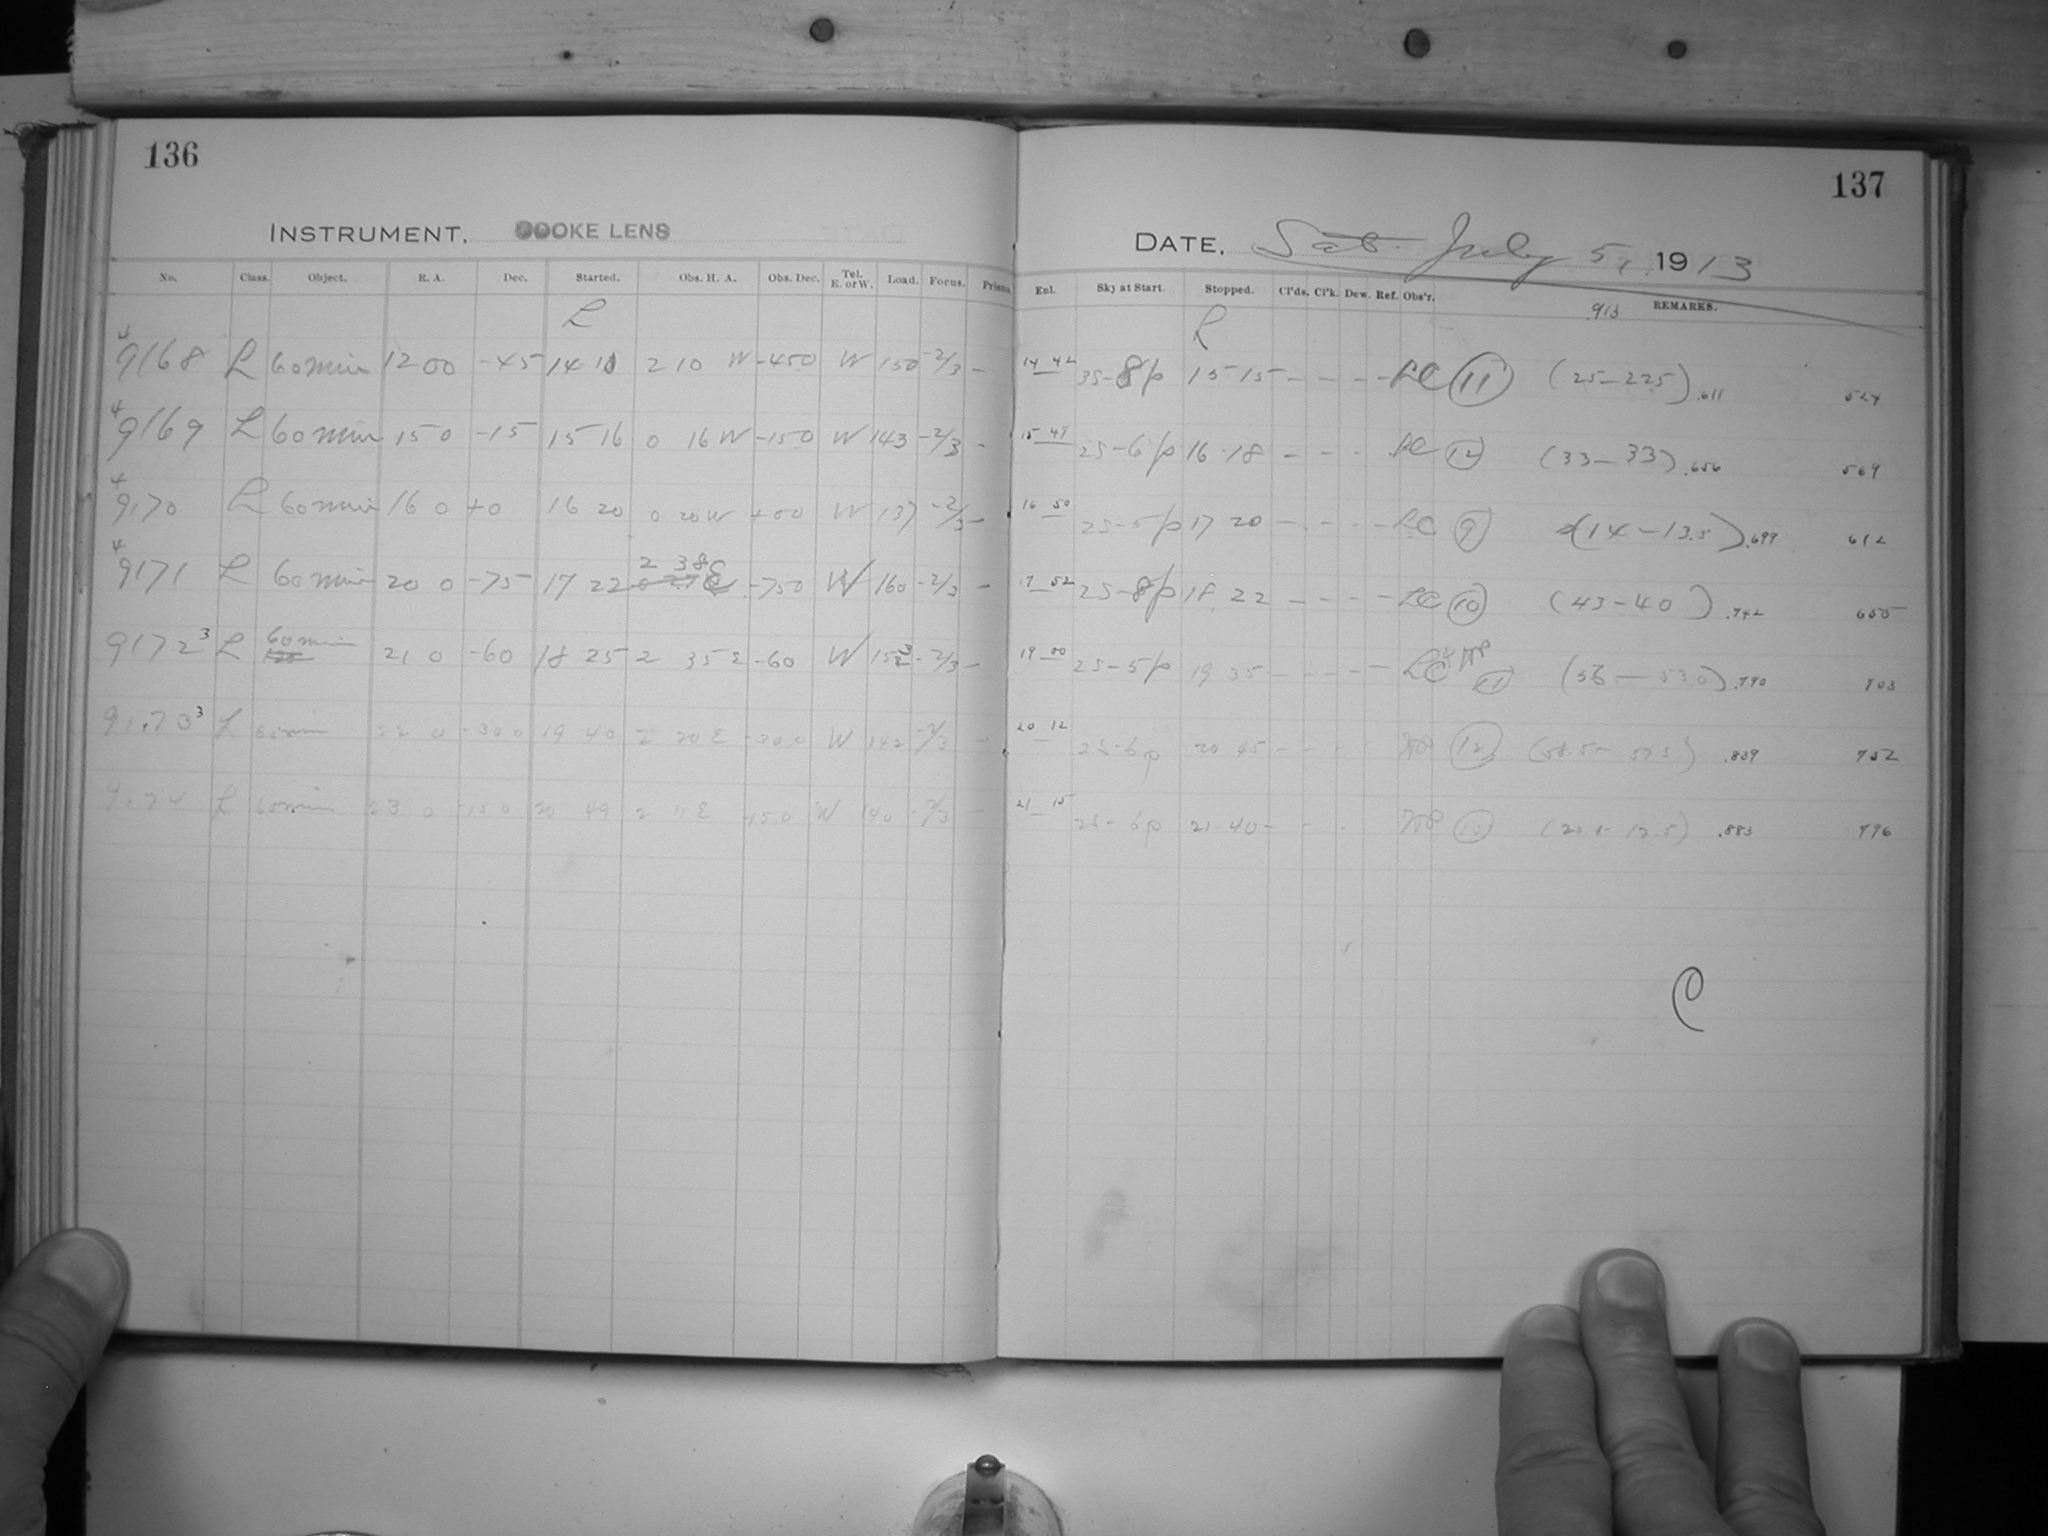 136
INSTRUMENT, COOKE LENS
No. Class. Object. R. A. Dec. Started. Obs. H. A. Obs. Dec. Tel. E. or W. Load. Focus. Prisms.
L
4 9168 L 60 min 12 00 -45 14 10 2 10 W -450 W 150 -2/3 -
4 9169 L 60 min 15 0 -15 15 16 0 16 W -150 W 143 -2/3 -
4 9170 L 60 min 16 0 +0 16 20 0 20 W +00 W 137 -2/3 -
2 38 E
4 9171 L 60 min 20 0 -75 17 22 -750 W 160 -2/3 -
9172 3 L 60 min 21 0 -60 18 25 2 35 E -60 W 153 -2/3 -
9173 3 L 60 min 22 0 -30 0 19 40 2 20 E -30.0 W 142 -2/3 -
9174 L 60 min 23 0 -15 0 20 49 2 11 E -15.0 W 140 -2/3 -
137
DATE, Sat. July 5, 1913
Enl. Sky at Start. Stopped. Cl'ds. Cl'k. Dew. Ref. Obs'r. REMARKS.
913
L
14 42 3S-8p 15 15 - - - - LC 11 (25-225) .611 524
15 47 2S-6p 16 18 - - - LC 12 (33-33) .656 569
16 50 2S-5p 17 20 - - - - LC 9 (14-13.5) .699 612
17 52 2S-8p 18 22 - - - - LC 10 (43-40) .742 655
19 00 2S-5p 19 35 - - - - LC 11 (56-530) .790 703
20 12 2S-6p 20 45 - - - 12 (58.5-575) .839 752
21 15 2S-6p 21 40 - - 10 .883 796